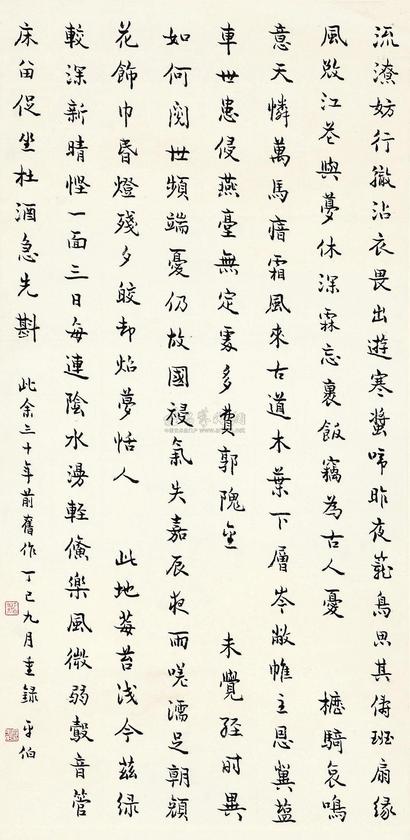 流潦妨行轍沾衣畏出遊寒螿啼昨夜蘀鳥思其儔班扇緣
風殿江花與夢休深霖忘裹飯竊為古人憂　櫪騎哀鳴
意天憐萬馬瘖霜風來古道木葉下層岑敝帷主恩冀藍
車世患侵燕臺無定處多費郭隗金　未覺經時異
如何閱世頻端憂仍故國祲氣失嘉辰夜雨嗟濡足朝頮
花飾巾昏燈殘夕皎却焰夢恬人　此地莓苔淺今茲綠
較深新晴慳一面三日每連陰水湯輕鯈樂風微弱鷇音管
床留促坐杜酒急先斟　此余三十年前舊作丁巳九月重錄　平伯